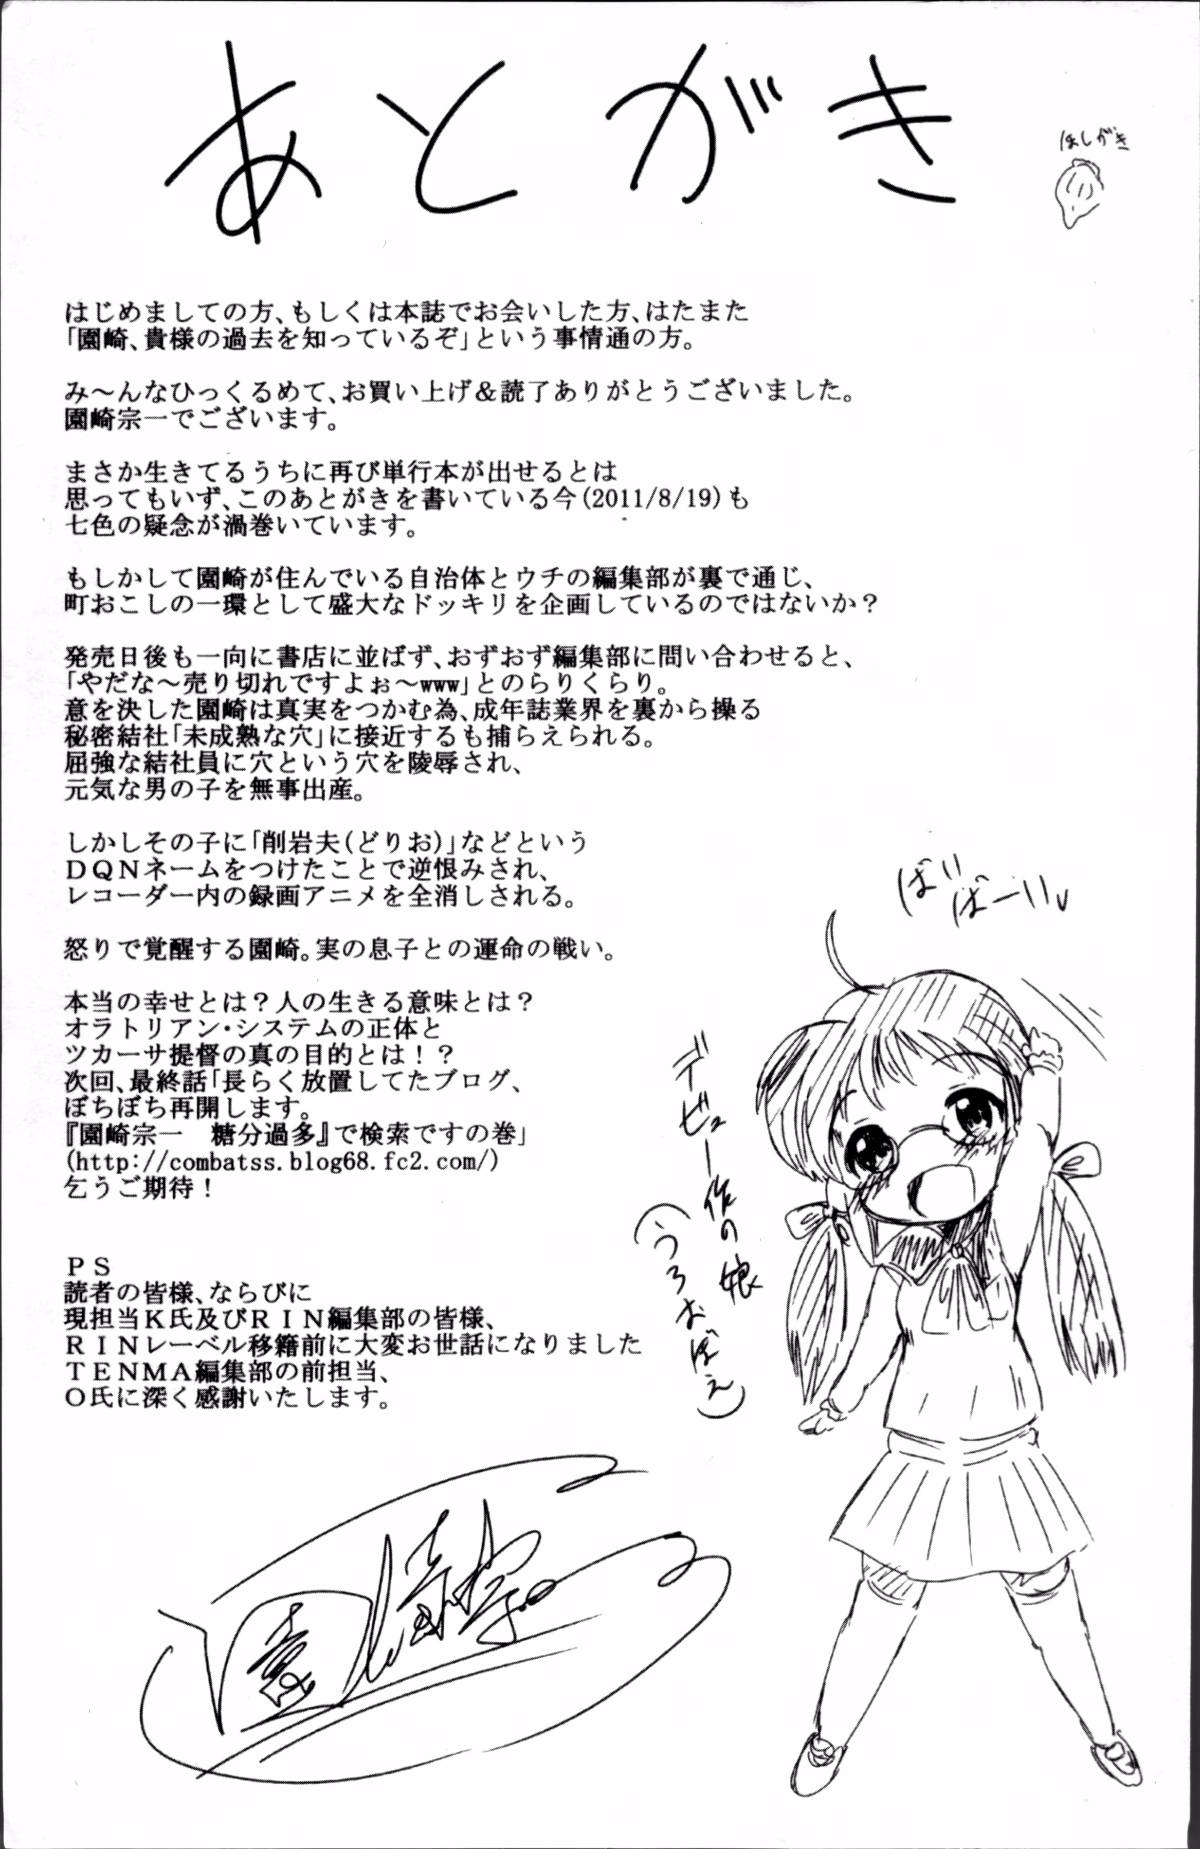 あとがき
ほしがき
はじめましての方、もしくは本誌でお会いした方、はたまた
「園崎、貴様の過去を知っているぞ」という事情通の方。
み～んなひっくるめて、お買い上げ＆読了ありがとうございました。
園崎宗一でございます。
まさか生きてるうちに再び単行本が出せるとは
思ってもいず、このあとがきを書いている今(2011/8/19)も
七色の疑念が渦巻いています。
もしかして園崎が住んでいる自治体とウチの編集部が裏で通じ、
町おこしの一環として盛大なドッキリを企画しているのではないか？
発売日後も一向に書店に並ばず、おずおず編集部に問い合わせると、
「やだな～売り切れですよぉ～www」とのらりくらり。
意を決した園崎は真実をつかむ為、成年誌業界を裏から操る
秘密結社「未成熟な穴」に接近するも捕らえられる。
屈強な結社員に穴という穴を陵辱され、
元気な男の子を無事出産。
しかしその子に「削岩夫(どりお)」などという
ＤＱＮネームをつけたことで逆恨みされ、
レコーダー内の録画アニメを全消しされる。
怒りで覚醒する園崎。実の息子との運命の戦い。
本当の幸せとは？人の生きる意味とは？
オラトリアン・システムの正体と
ツカーサ提督の真の目的とは！？
次回、最終話「長らく放置してたブログ、
ぼちぼち再開します。
『園崎宗一　糖分過多』で検索ですの巻」
(http://combatss.blog68.fc2.com/)
乞うご期待！
ＰＳ
読者の皆様、ならびに
現担当Ｋ氏及びＲＩＮ編集部の皆様、
ＲＩＮレーベル移籍前に大変お世話になりました
ＴＥＮＭＡ編集部の前担当、
Ｏ氏に深く感謝いたします。
ばい
ばーい
デビュー作の娘
(うろおぼえ)